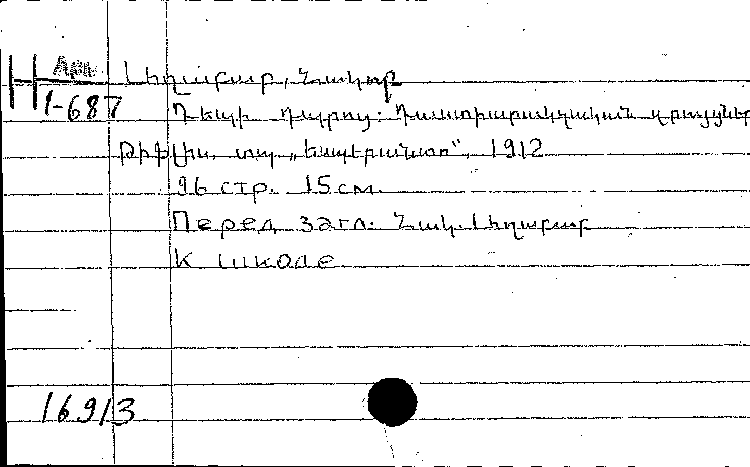 Н Арм
1-687
Լեղաբար, Հակոբ
Դեպի դպրոց: Դաստիարակչական զրույցներ
Թիֆլիս, տպ. „Էսպերանտո“, 1912
96 стр. 15 см.
Перед загл: Հակ. Լեղաբար
К школе
16913